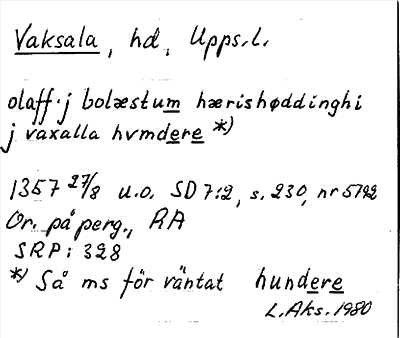 Vaksala, hd, Upps.l.
olaff·j bolæstum hærishøddinghi
j vaxalla hvmdere *)
1357 27/8 u.o. SD 7:2, s. 230, nr 5792
Or. på perg., RA
SRP: 328
*) Så ms för väntat hundere
L. Aks. 1980